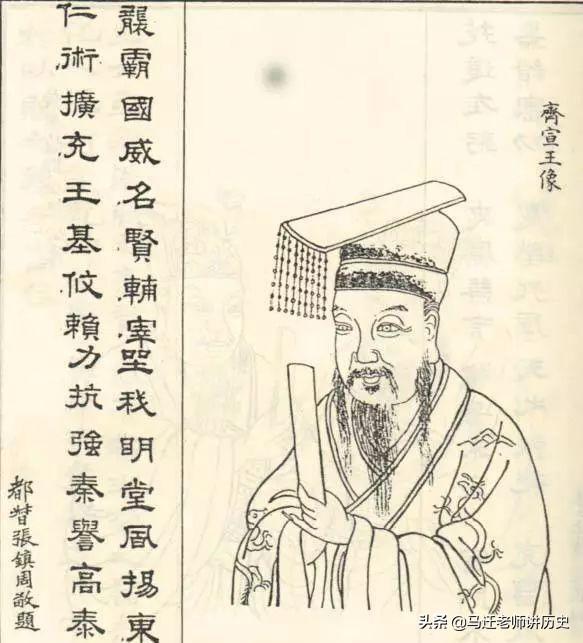 齊宣王像
襲霸國威名賢輔宰我明堂風揚東
仁術擴充王基攸賴力抗強秦譽高泰
都督張鎮周敬題
头条 @马迁老师讲历史